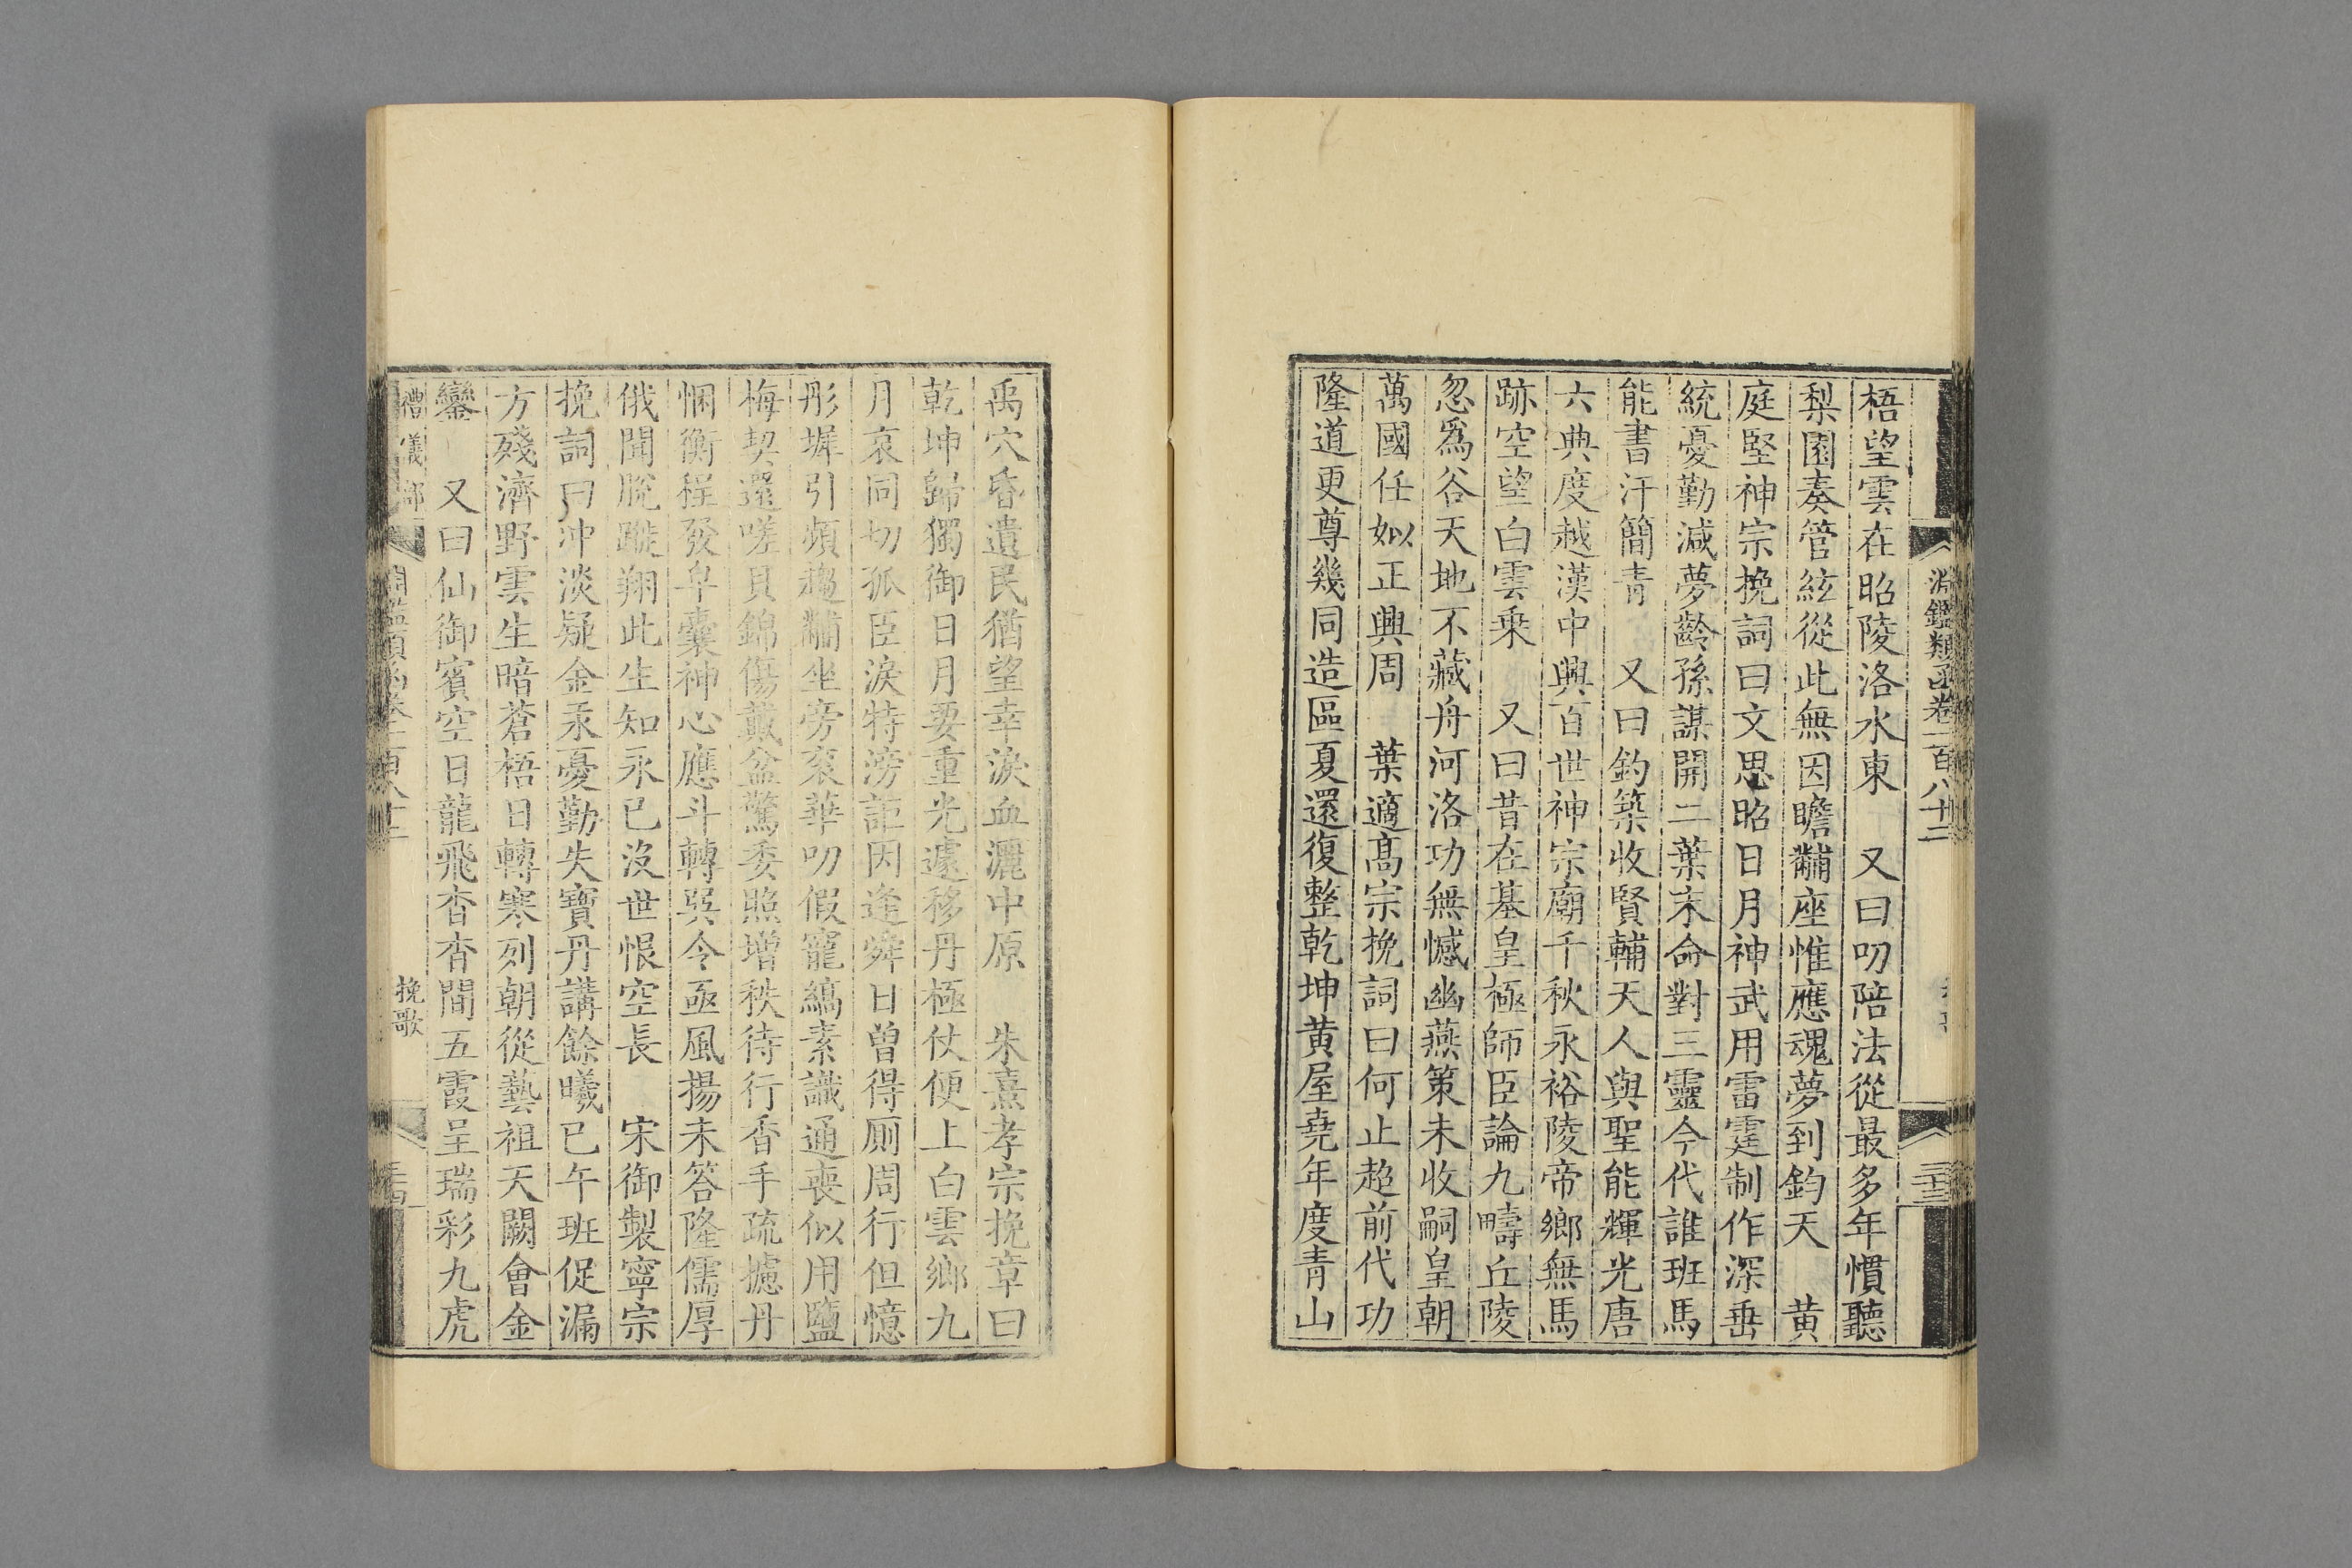 淵鑑類函卷一百八十二
三十三
梧望雲在昭陵洛水東　又曰叨陪法從最多年慣聽
梨園奏管絃從此無因瞻黼座惟應魂夢到鈞天　黃
庭堅神宗挽詞曰文思昭日月神武用雷霆制作深垂
統憂勤減夢齡孫謀開二葉末命對三靈今代誰班馬
能書汗簡青　又曰釣築收賢輔天人與聖能輝光唐
六典度越漢中興百世神宗廟千秋永裕陵帝鄉無馬
跡空望白雲乗　又曰昔在基皇極師臣論九疇丘陵
忽爲谷天地不藏舟河洛功無憾幽燕策未收嗣皇朝
萬國任姒正興周　葉適髙宗挽詞曰何止超前代功
隆道更尊幾同造區夏還復整乾坤黃屋堯年度青山
禹穴昏遺民猶望幸淚血灑中原　朱熹孝宗挽章曰
乾坤歸獨御日月要重光遽移丹極仗便上白雲鄉九
月哀同切孤臣淚特滂詎因逢舜日曾得厠周行但憶
彤墀引頻趨黼坐旁衮華叨假寵縞素識通喪似用鹽
梅契還嗟貝錦傷戴盆驚委照增秩待行香手疏攄丹
悃衡程發皁囊神心應斗轉巽令亟風揚未答隆儒厚
俄聞脫蹝翔此生知永已沒世恨空長　宋御製寧宗
挽詞曰冲淡疑金汞憂勤失寶丹講餘曦已午班促漏
方殘濟野雲生暗蒼梧日轉寒列朝從藝祖天闕會金
鑾　又曰仙御賓空日龍飛杳杳間五霞呈瑞彩九虎
禮儀部　挽歌